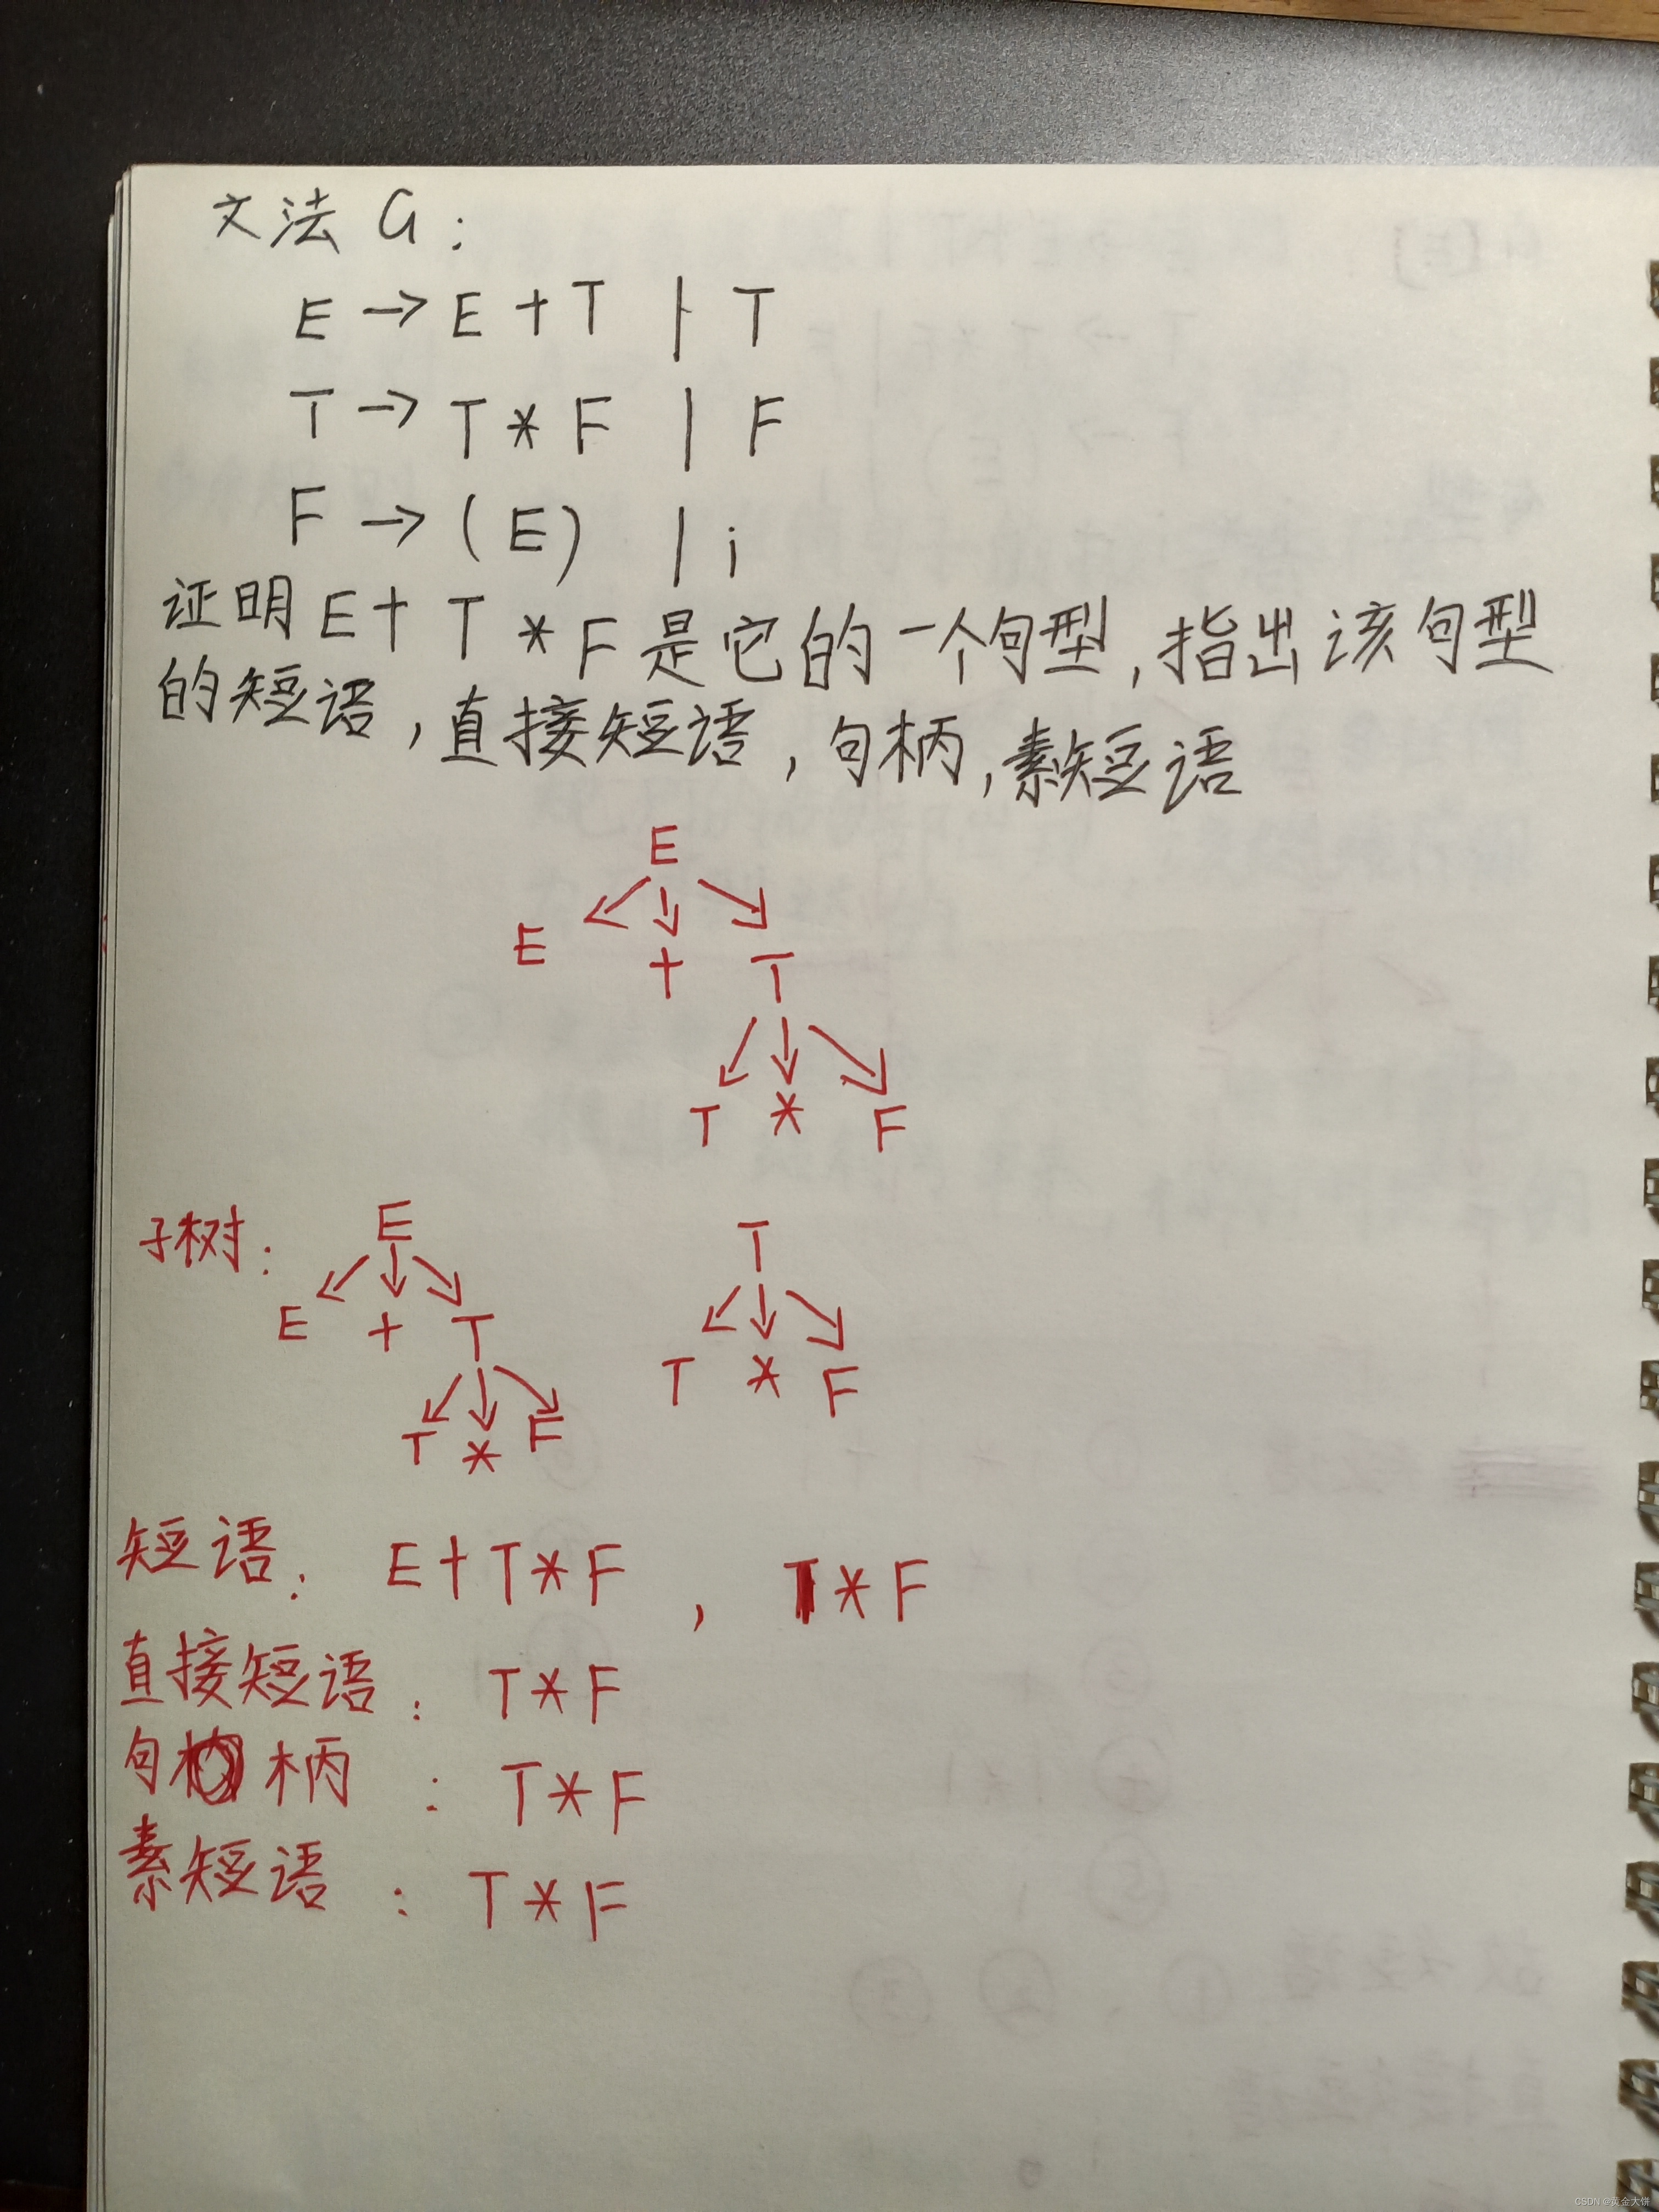 文法 G:
E → E + T | T
T → T * F | F
F → (E) | i
证明 E + T * F 是它的一个句型,指出该句型
的短语,直接短语,句柄,素短语
E
E + T
T * F
子树: E T
E + T T * F
T * F
短语: E + T * F , T * F
直接短语: T * F
句柄: T * F
素短语: T * F
CSDN @黄金大饼